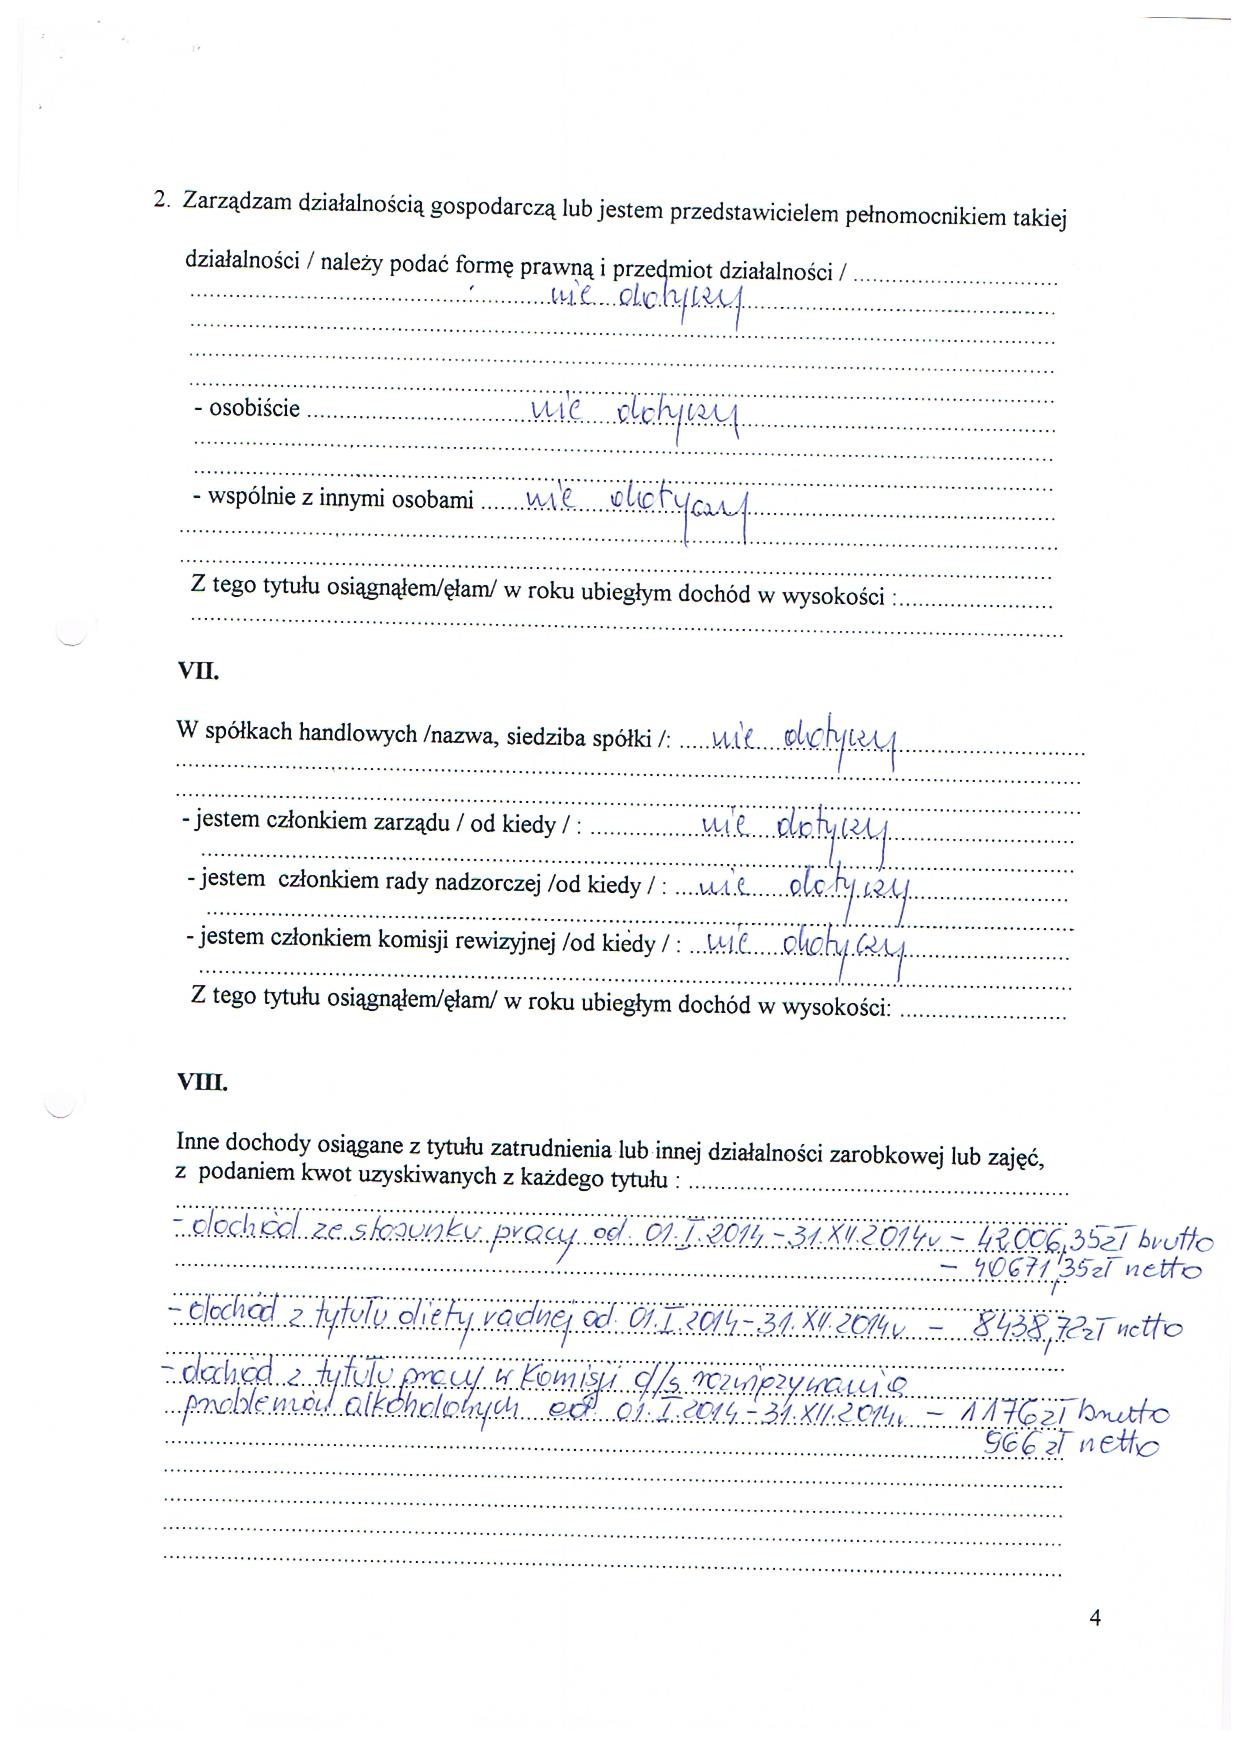 2. Zarządzam działalnością gospodarczą lub jestem przedstawicielem pełnomocnikiem takiej
działalności / należy podać formę prawną i przedmiot działalności / ..............................
nie dotyczy
- osobiście .............................. nie dotyczy
- wspólnie z innymi osobami ...... nie dotyczy
Z tego tytułu osiągnąłem/ęłam/ w roku ubiegłym dochód w wysokości :......................
VII.
W spółkach handlowych /nazwa, siedziba spółki /: ..... nie dotyczy
- jestem członkiem zarządu / od kiedy / : .................. nie dotyczy
- jestem członkiem rady nadzorczej /od kiedy / : .... nie dotyczy
- jestem członkiem komisji rewizyjnej /od kiedy / : .. nie dotyczy
Z tego tytułu osiągnąłem/ęłam/ w roku ubiegłym dochód w wysokości: ........................
VIII.
Inne dochody osiągane z tytułu zatrudnienia lub innej działalności zarobkowej lub zajęć,
z podaniem kwot uzyskiwanych z każdego tytułu : ..............................
- dochód ze stosunku pracy od 01.I.2014-31.XII.2014r - 42006,35zł brutto
- 40671,35zł netto
- dochód z tytułu diety radnej od 01.I.2014-31.XII.2014r - 8438,72zł netto
- dochód z tytułu pracy w Komisji d/s rozwiązywania
problemów alkoholowych od 01.I.2014-31.XII.2014r - 1176zł brutto
966 zł netto
4